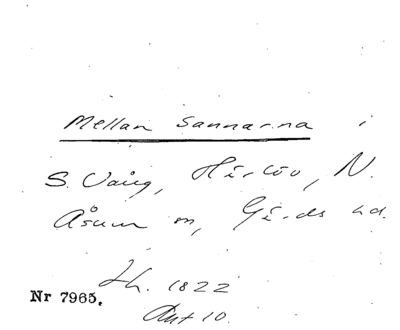 Mellan Sannarna i
S. Vång, Härlöv, N.
Åsum sn, Gärds hd.
Jh. 1822
Nr 7965.
Akt 10.